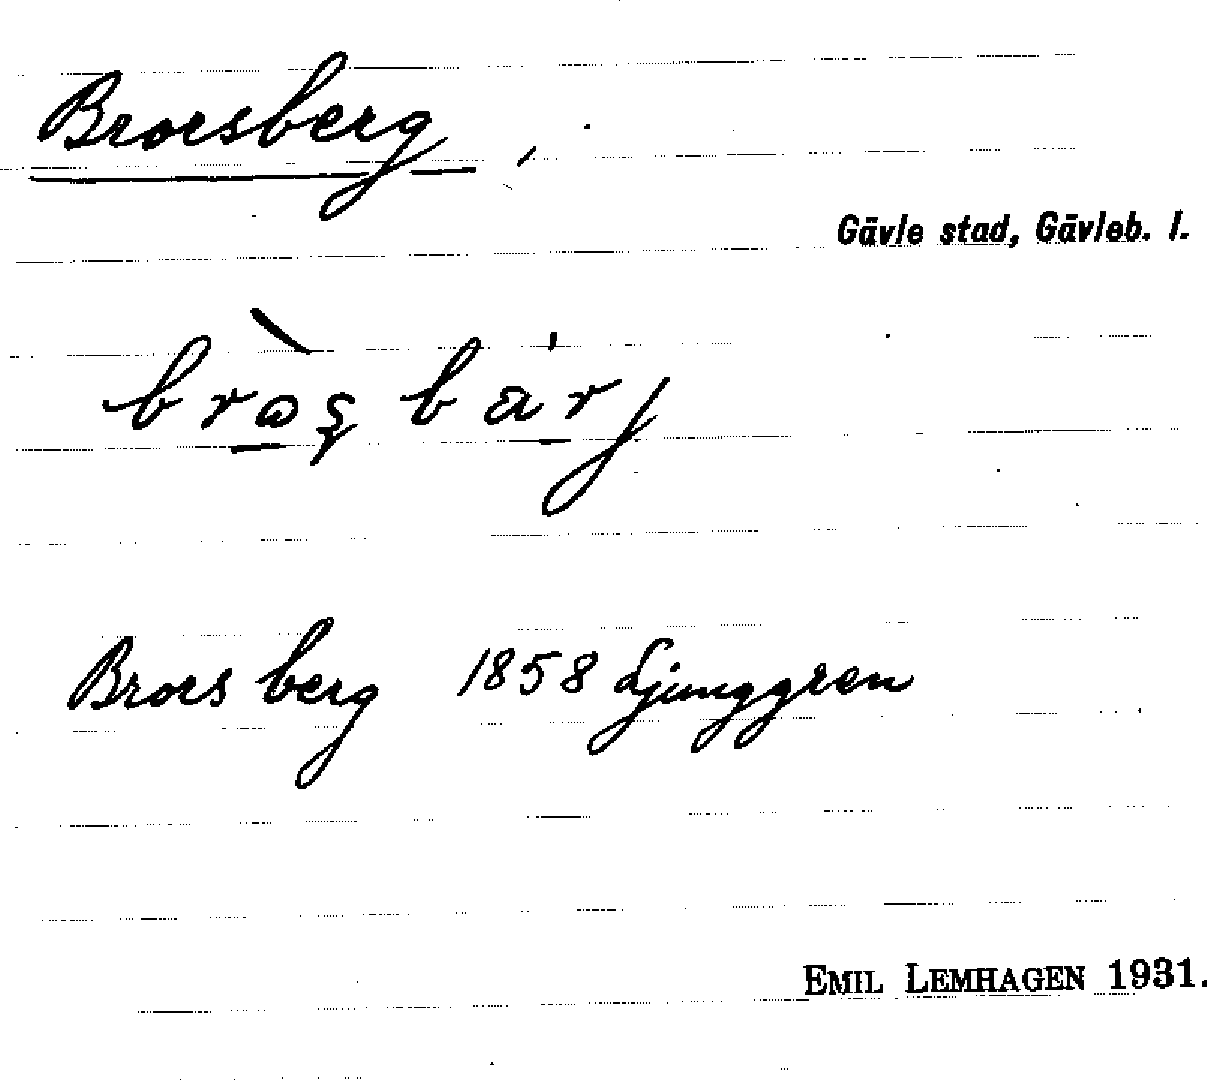 Brorsberg,
Gävle stad, Gävleb. l.
bròʂ bárj
Brors berg 1858 Ljunggren
EMIL LEMHAGEN 1931.